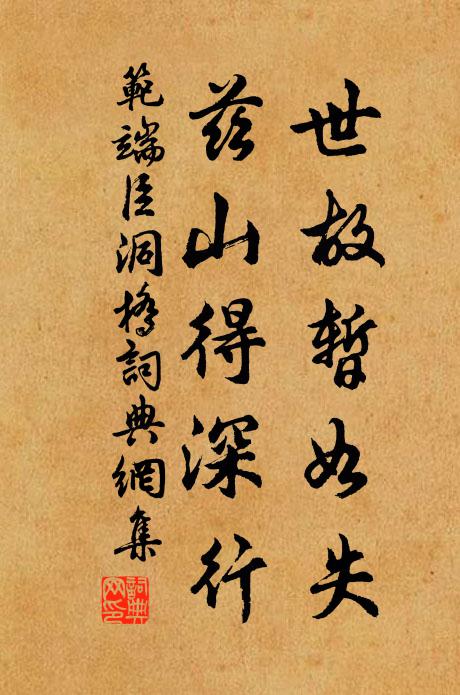 世故暫如失
茲山得深行
範端臣洞橋詞典網集
詞典網印